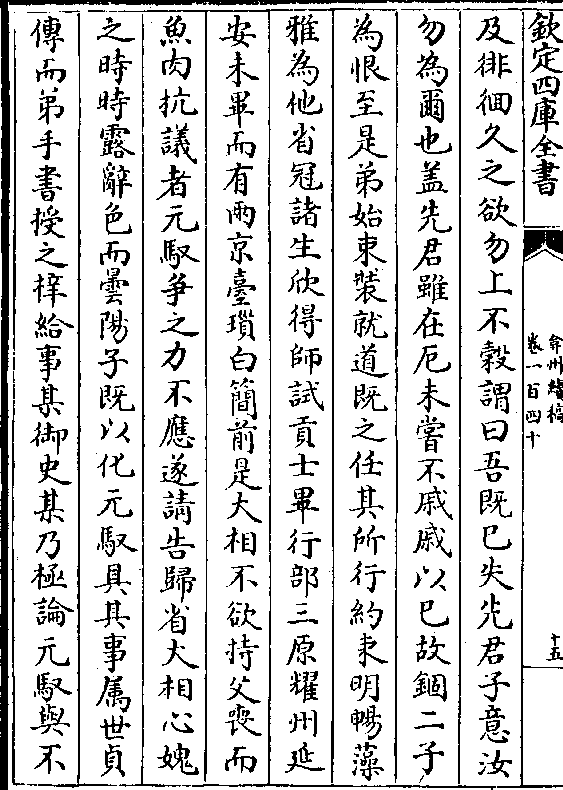 欽定四庫全書
弇州續稿
卷一百四十
十五
及徘徊久之欲勿上不穀謂曰吾既已失先君子意汝
勿為爾也盖先君雖在厄未嘗不戚戚以已故錮二子
為恨至是弟始束裝就道既之任其所行約束明暢藻
雅為他省冠諸生欣得師試貢士畢行部三原耀州延
安未畢而有兩京臺瑣白簡前是大相不欲持父喪而
魚肉抗議者元馭爭之力不應遂請告歸省大相心媿
之時時露辭色而曇陽子既以化元馭具其事属世貞
傳而弟手書授之梓給事某御史某乃極論元馭與不